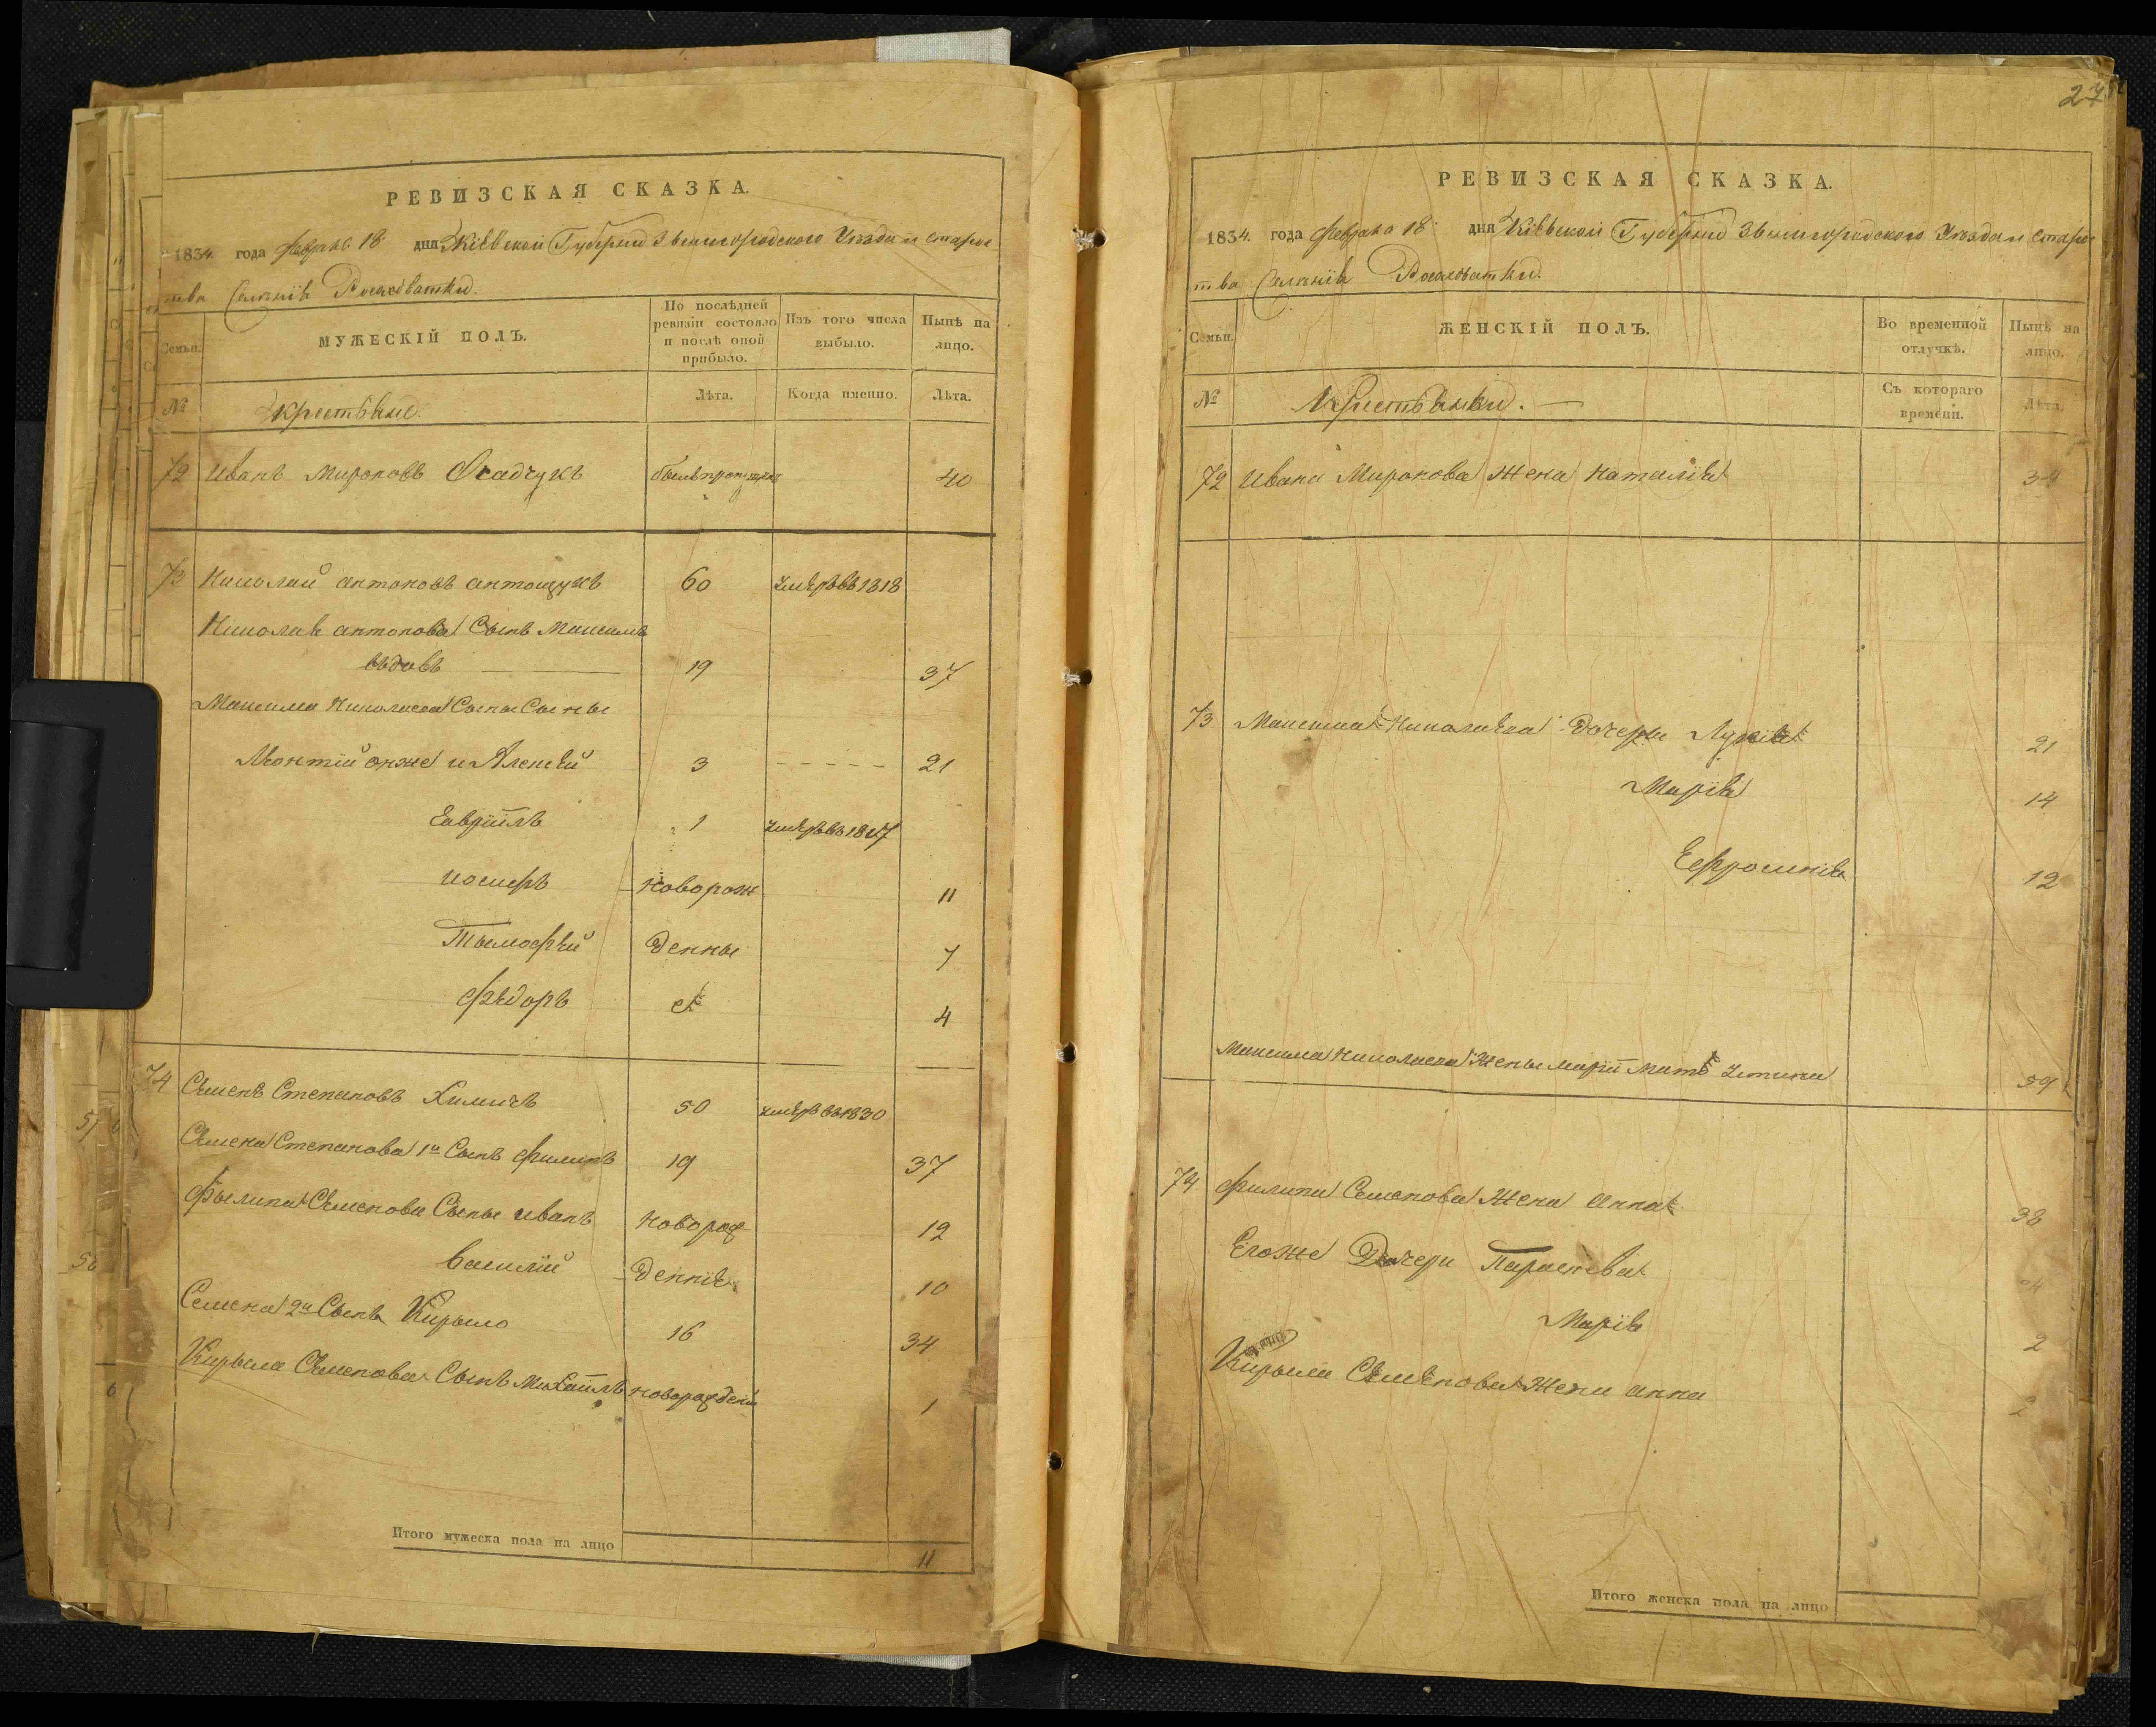 РЕВИЗСКАЯ СКАЗКА.
1834 года Февраля 18 дня Кіевской Губерніи Звенигородского Уезда и Старос
тва Селенія Розсоховатки.
Семьи.
МУЖЕСКІЙ ПОЛЪ.
По послѣдней ревизіи состояло и послѣ оной прибыло.
Изъ того числа выбыло.
Нынѣ на лицо.
№
Крестьяне.
Лѣта.
Когда именно.
Лѣта.
72 Иванъ Мироновъ Осадчукъ 40
73 Николай антоновъ антощукъ 60 умеръ въ 1818
Николая антонова Сынъ Максимъ
вдовъ 19 37
Максима Николаева Сына Сыны
Леонтій онже и Алексей 3 21
Гавріилъ 1 умеръ въ 1817
иосифъ новорож 11
Тымофей денны 7
Федоръ 4
74 Семенъ Степановъ Химичъ 50 умеръ въ 1830
Семена Степанова 1й Сынъ Филипъ 19 37
Фылипа Семенова Сыны иванъ новорож 12
Василій денніе 10
Семена 2й Сынъ Кирыло 16 34
Кирыла Семенова Сынъ Михаилъ новорожденъ 1
Итого мужеска пола на лицо 11
27
РЕВИЗСКАЯ СКАЗКА.
1834. года Февраля 18 дня Кіевской Губерніи Звенигородского Уезда и Старос
тва Селенія Розсоховатки.
Семьи.
ЖЕНСКІЙ ПОЛЪ.
Во временной отлучкѣ.
Нынѣ на лицо.
№
Крестьянки.
Съ котораго времени.
Лѣта.
72 Ивана Миронова Жена Наталія 34
73 Максима Николаева Дочери Лукія 21
Марія 14
Ефросинія 12
Максима Николаева Жены Маріи Мать Устина 59
74 Филипа Семенова Жена Анна 38
Егоже Дочери Параскева
Марія 2
Кирыла Семенова Жена анна
Итого женска пола на лицо